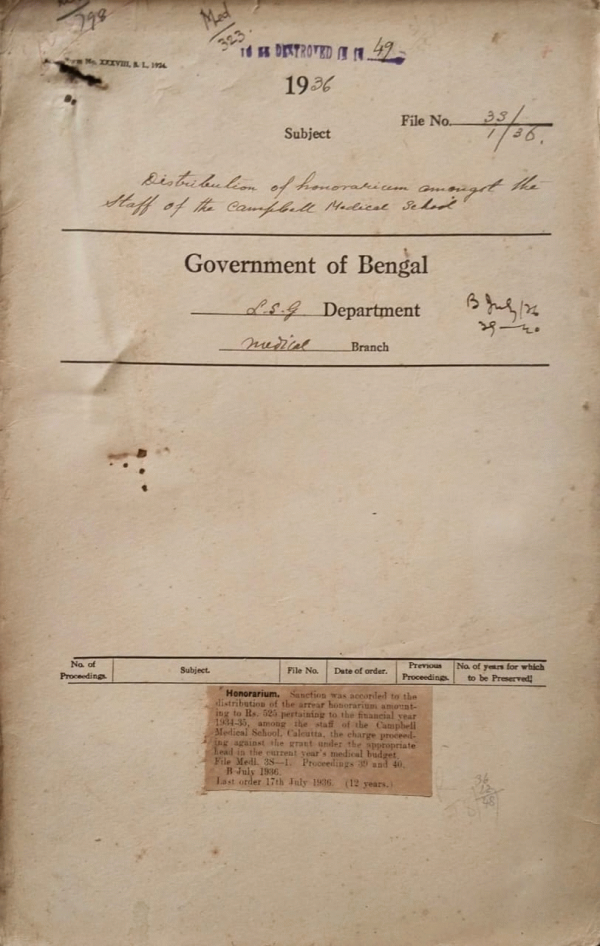 798
Med
323
TO BE DESTROYED IN 19 49
Form No. XXXVIII, S. I., 1934.
1936
File No. 33/1/36.
Subject
Distribution of honorarium amongst the
Staff of the Campbell Medical School
Government of Bengal
L.S.G Department
B July/36
39—40
medical Branch
No. of Proceedings.
Subject.
File No.
Date of order.
Previous Proceedings.
No. of years for which to be Preserved.
Honorarium. Sanction was accorded to the
distribution of the arrear honorarium amount-
ing to Rs. 525 pertaining to the financial year
1934-35, among the staff of the Campbell
Medical School, Calcutta, the charge proceed-
ing against the grant under the appropriate
head in the current year's medical budget.
File Medl. 3S—1. Proceedings 39 and 40.
B July 1936.
Last order 17th July 1936. (12 years.)
36
12
48